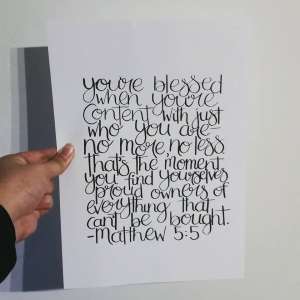 you're blessed
when you're
content with just
who you are–
no more, no less
that's the moment
you find yourselves
proud owners of
everything that
can't be bought.
-Matthew 5:5